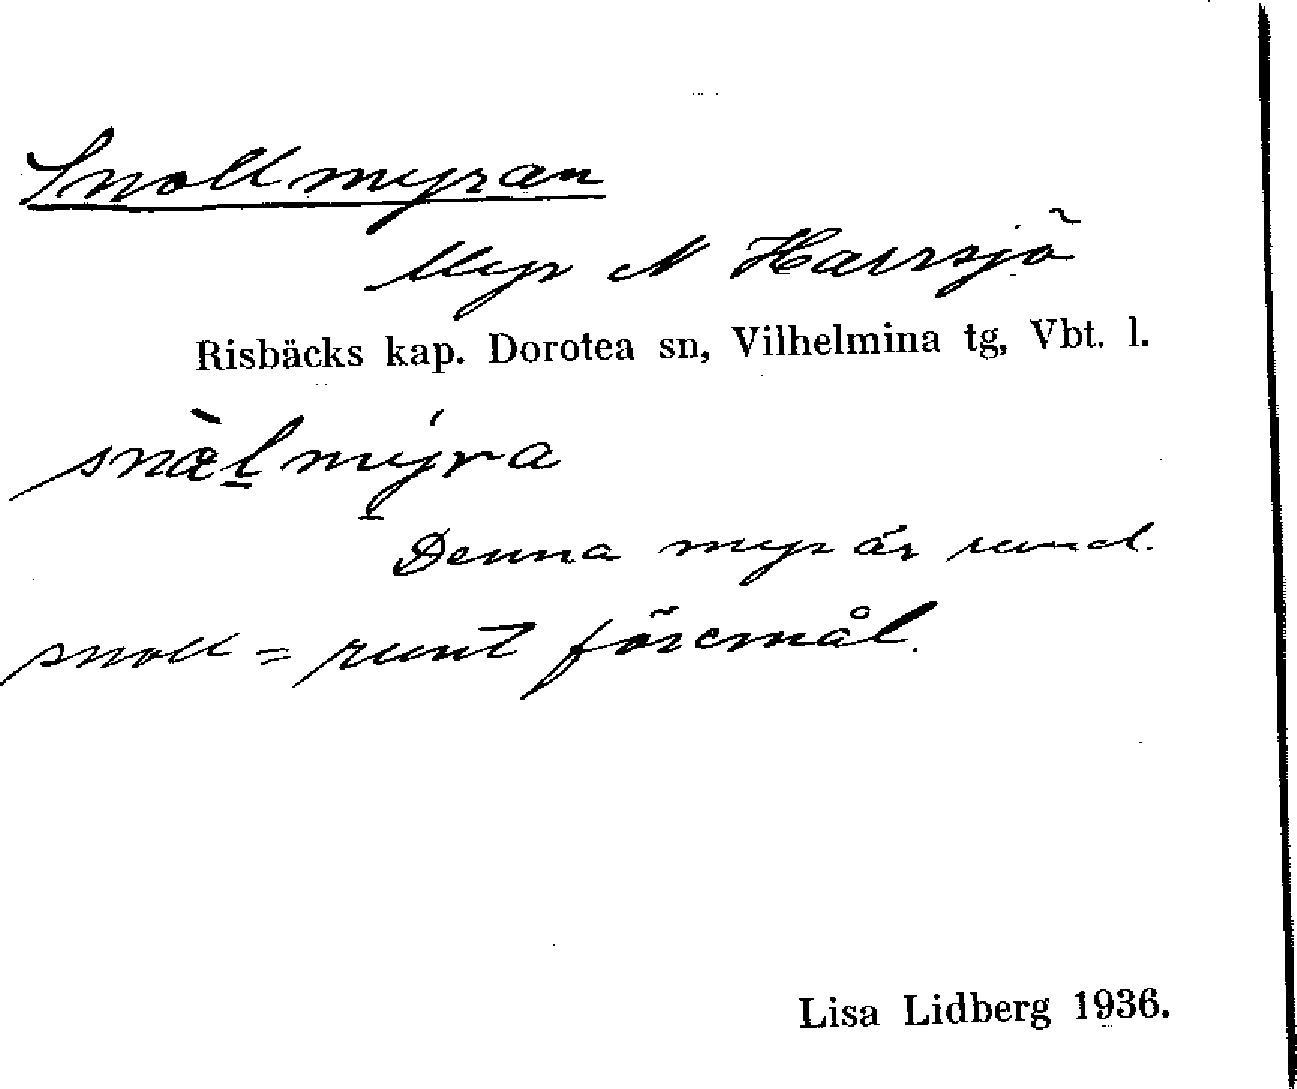 Snollmyran
Myr N Harrsjö
Risbäcks kap. Dorotea sn, Vilhelmina tg, Vbt. l.
snæ̀l̲mýra
Denna myr är rund.
snoll = runt föremål.
Lisa Lidberg 1936.